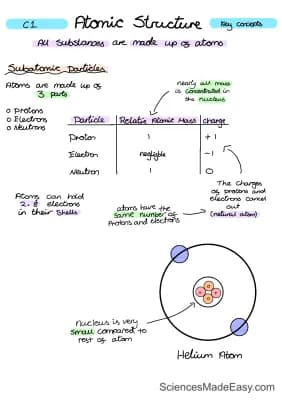 C1
Atomic Structure
Key concepts
All Substances are made up of atoms
Subatomic Particles
Atoms are made up of
3 parts
o Protons
o Electrons
o Neutrons
nearly all mass
is concentrated in
the nucleus
Particle Relative Atomic Mass charge
Proton 1 +1
Electron negligible -1
Neutron 1 0
Atoms can hold
electrons
in their shells
atoms have the
same number of
Protons and electrons
The charges
of protons and
electrons cancel
out
(neutral atom)
Nucleus is very
small compared to
rest of atom
Helium Atom
SciencesMadeEasy.com